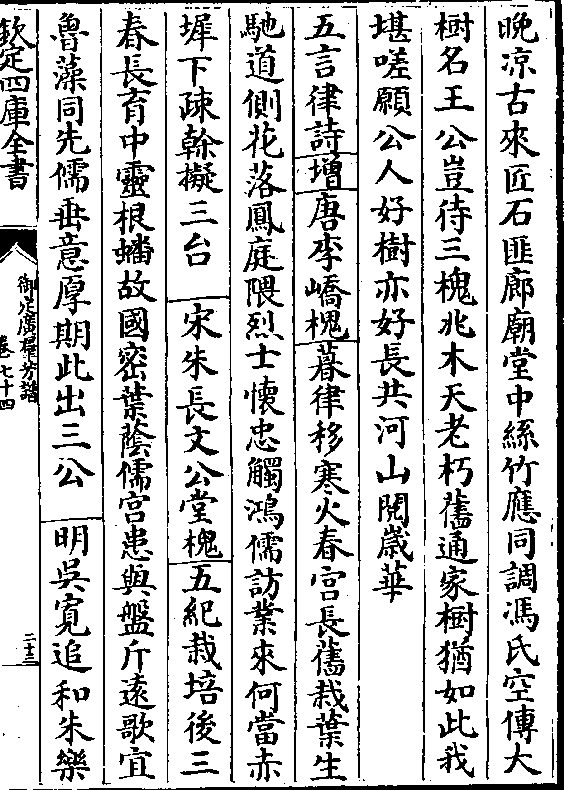 晚凉古來匠石匪廊廟堂中絲竹應同調馮氏空傳大
樹名王公豈待三槐兆木天老朽舊通家樹猶如此我
堪嗟願公人好樹亦好長共河山閱歲華
五言律詩增唐李嶠槐暮律移寒火春宫長舊栽葉生
馳道側花落鳳庭隈烈士懷忠觸鴻儒訪業來何當赤
墀下疎榦擬三台　宋朱長文公堂槐五紀栽培後三
春長育中靈根蟠故國密葉蔭儒宫患與盤斤逺歌宜
魯藻同先儒垂意厚期此出三公　明吳寛追和朱樂
欽定四庫全書
御定廣羣芳譜
卷七十四
二十三